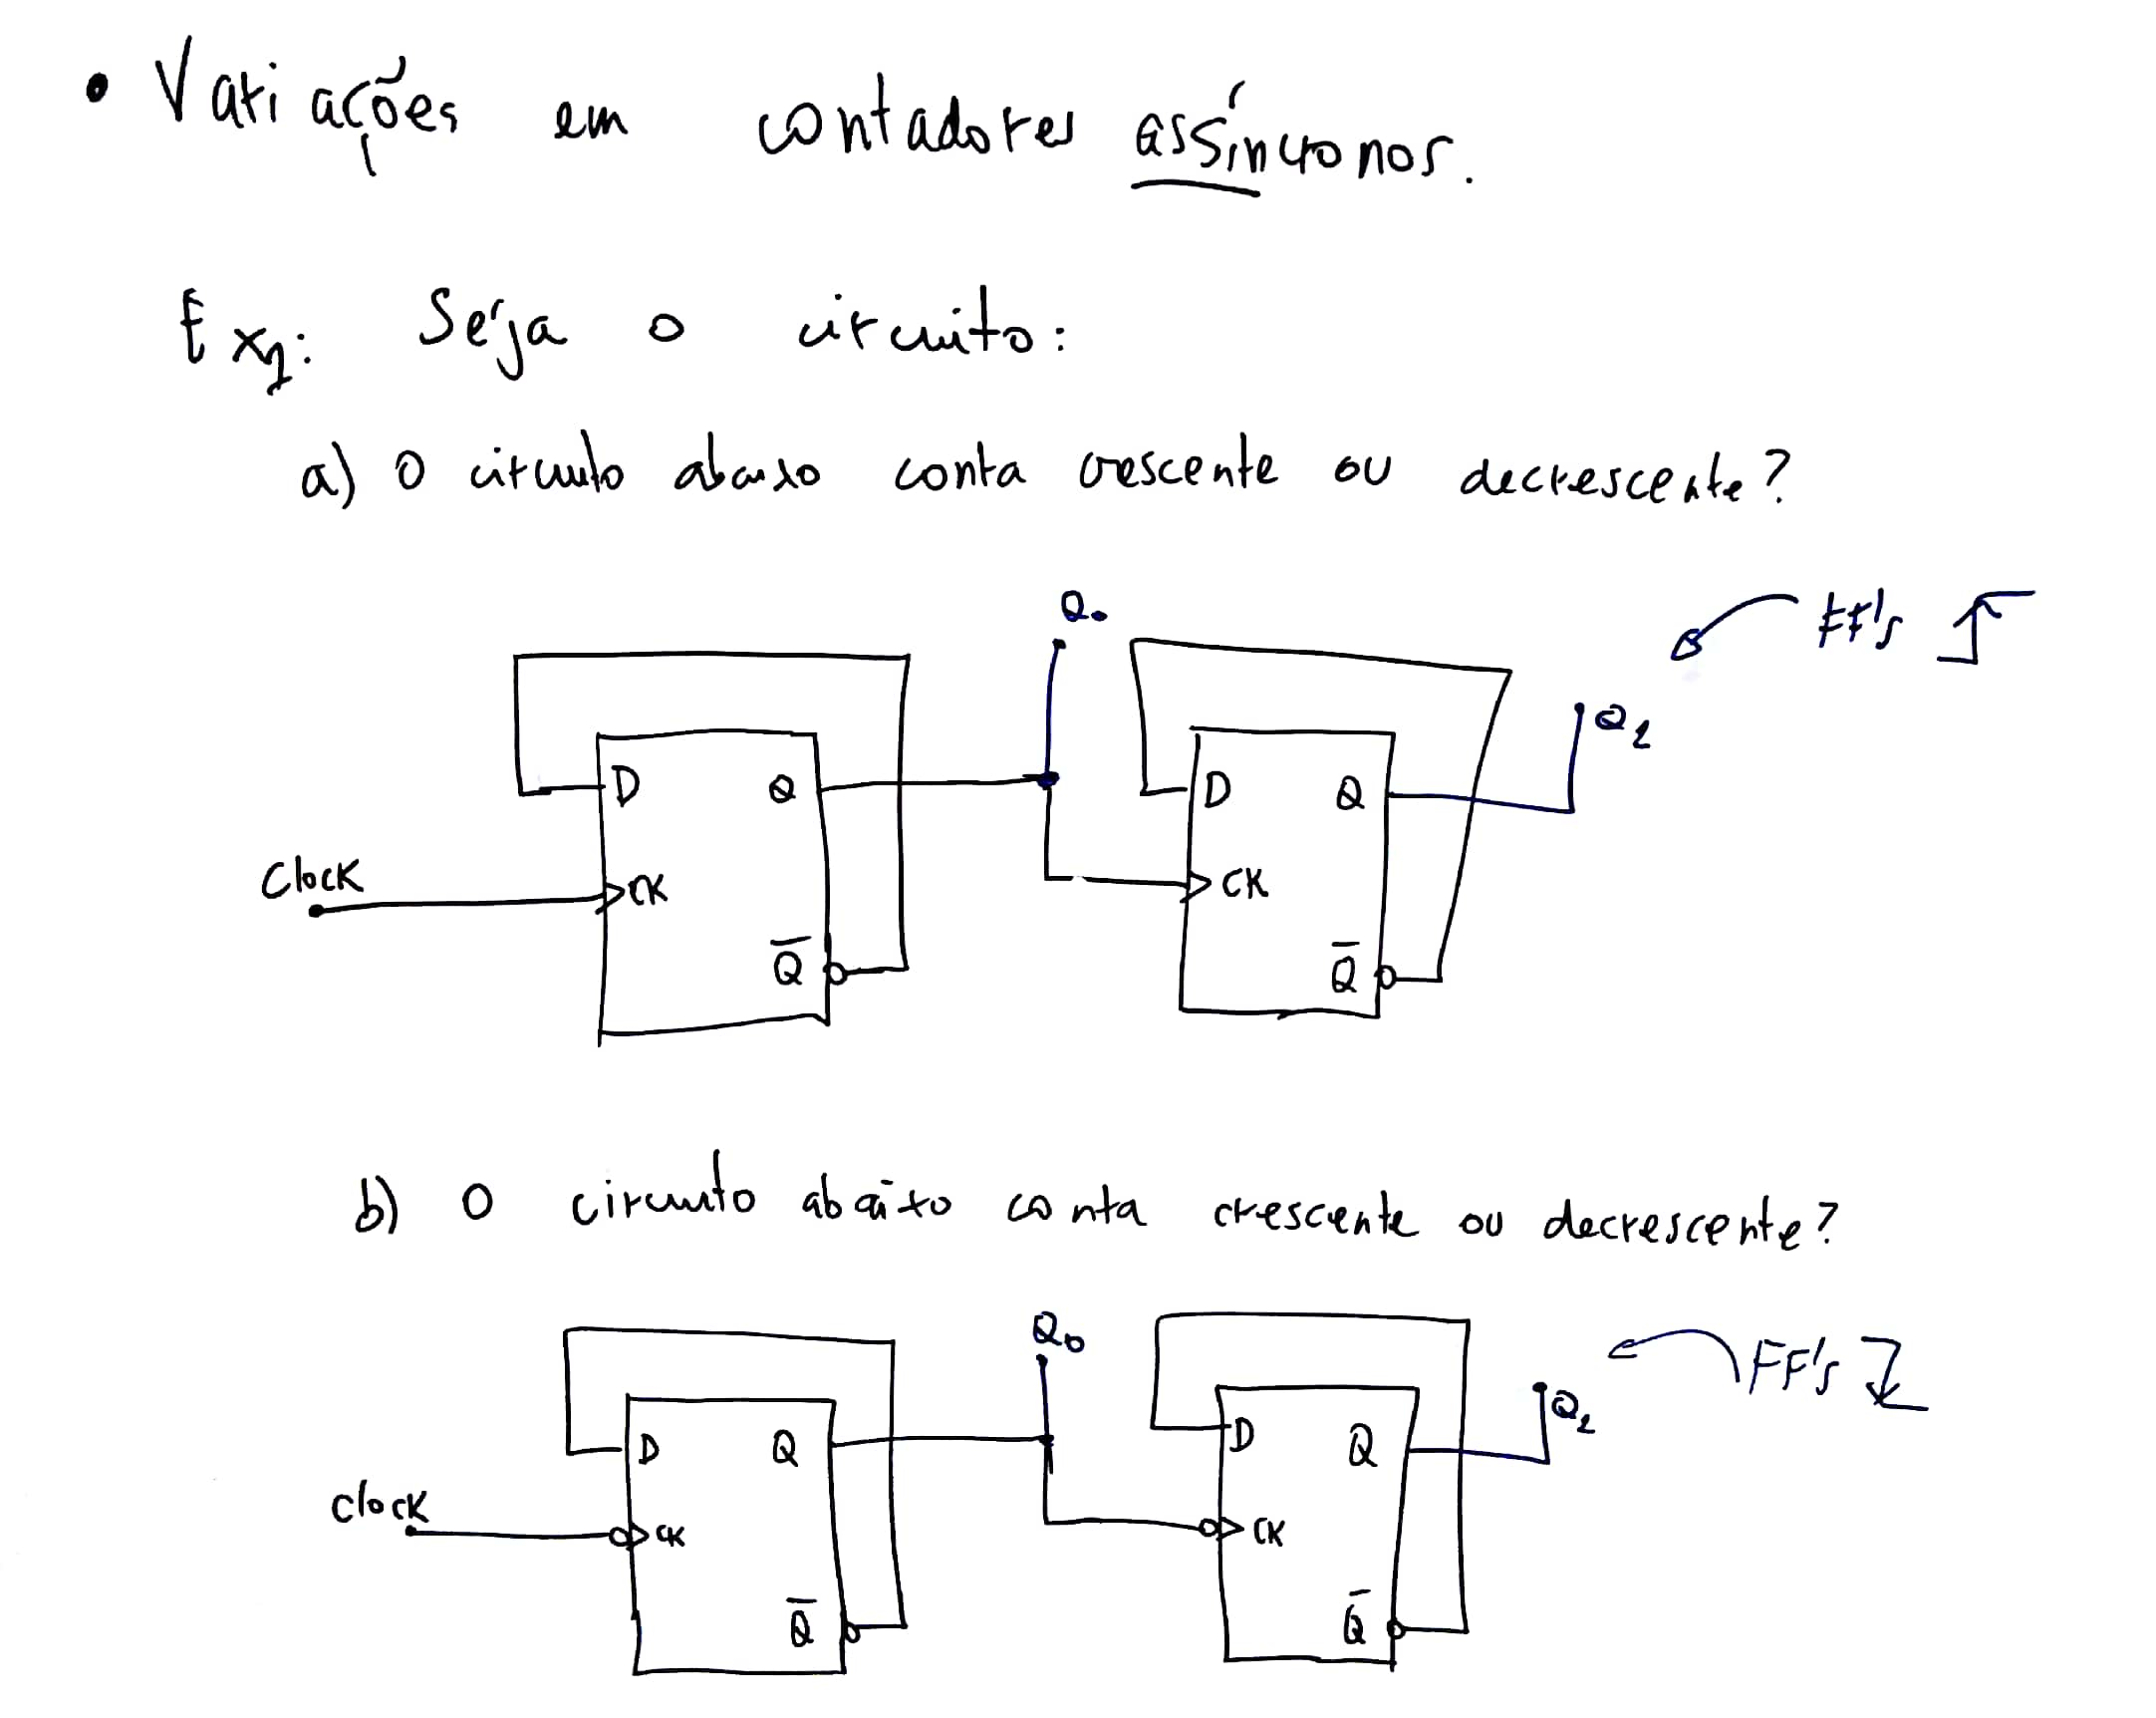 • Variações em contadores assíncronos.
Ex1: Seja o circuito:
a) O circuito abaixo conta crescente ou decrescente?
Q0
FF's
Q1
D Q D Q
Clock
CK CK
Q̅ Q̅
b) O circuito abaixo conta crescente ou decrescente?
Q0
FF's
Q1
D Q D Q
Clock
CK CK
Q̅ Q̅